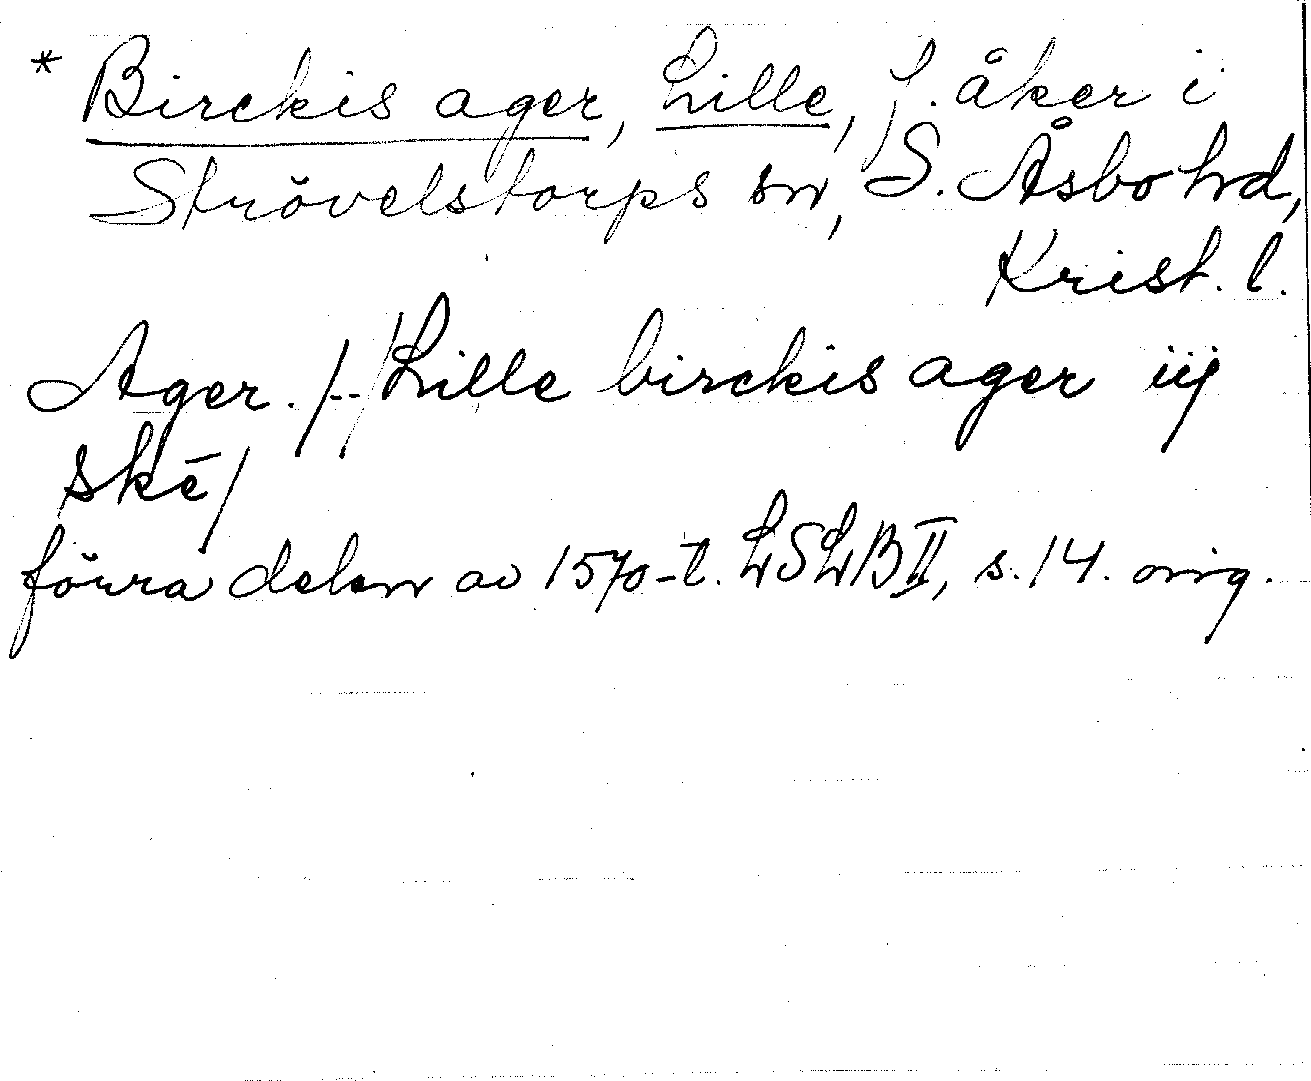 * Birckis ager, Lille, f. åker i
Strövelstorps sn, S. Åsbo hrd,
Krist. l.
Ager. /--/ Lille birckis ager iij
skē/
förra delen av 1570-t. LSLB II, s. 14. orig.